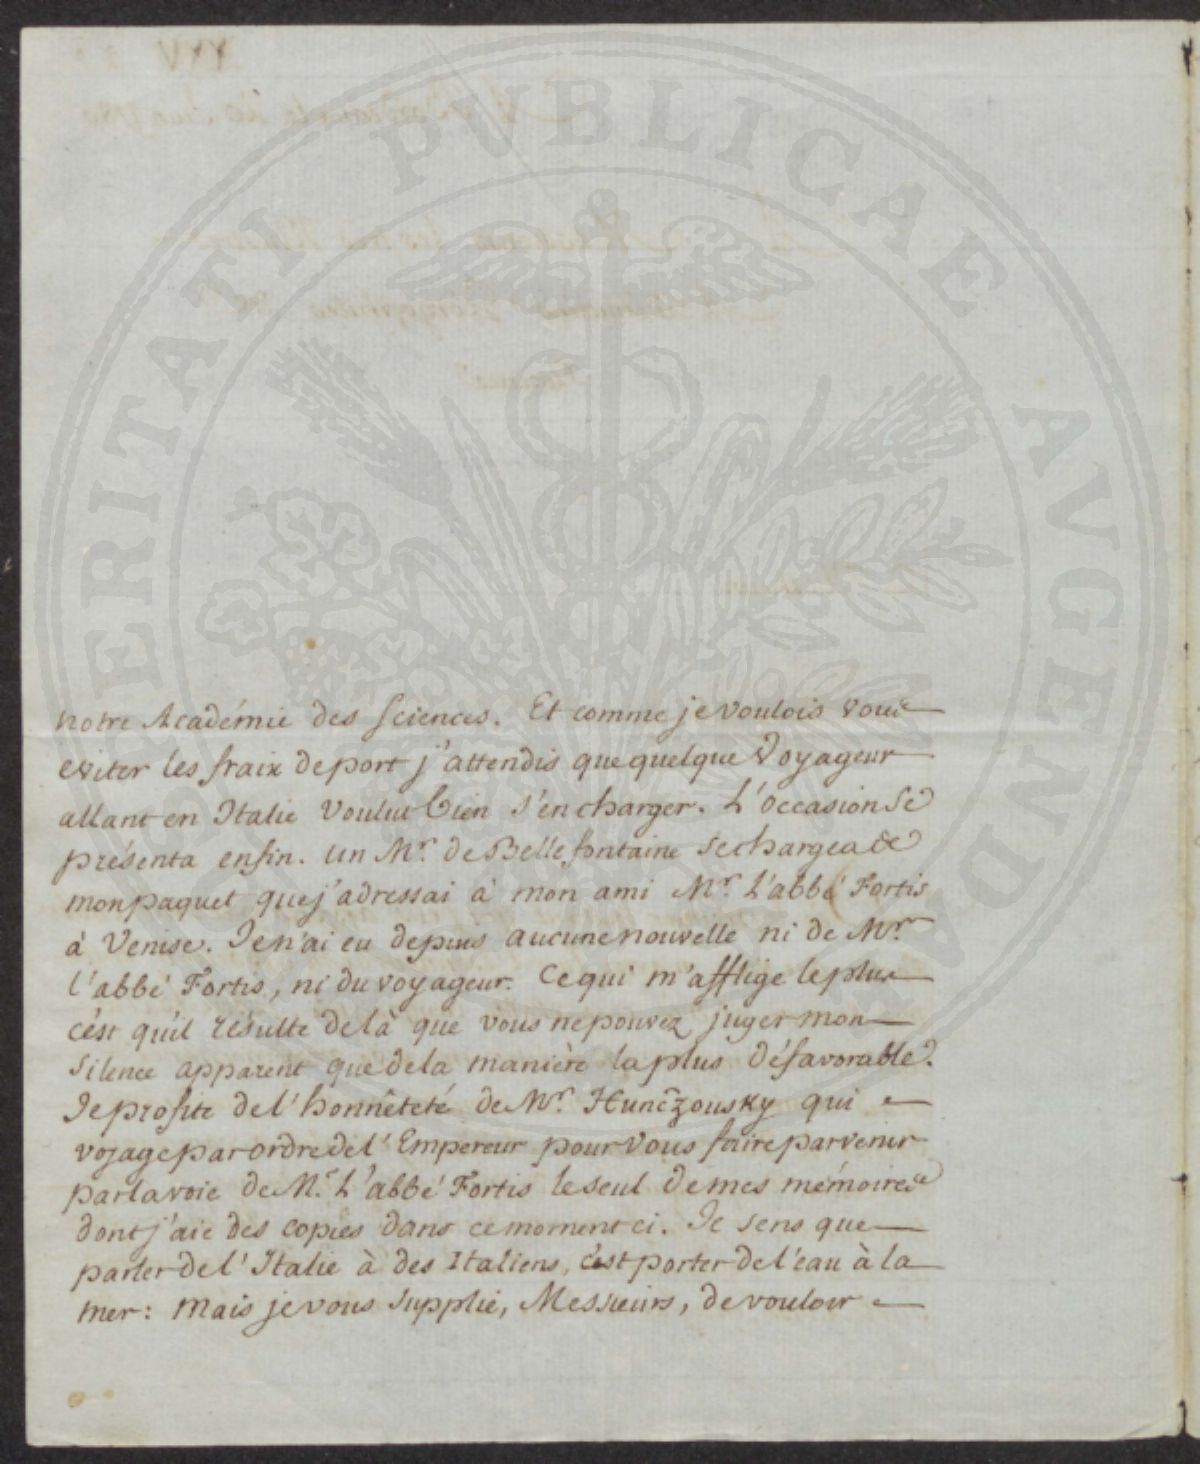 PROSPERITATI PUBLICAE AVGENDAE
notre Académie des Sciences. Et comme je voulois vous
eviter les fraix de port j'attendis que quelque Voyageur
allant en Italie voulut bien s'en charger. L'occasion se
présenta enfin. un Mr. de Bellefontaine se chargea de
mon paquet que j'adressai à mon ami Mr. L'abbé Fortis
à Venise. Je n'ai eu depuis aucune nouvelle ni de Mr.
l'abbé Fortis, ni du voyageur. Ce qui m'afflige le plus
c'est qu'il résulte de là que vous ne pouvez juger mon
silence apparent que de la manière la plus défavorable.
Je profite de l'honnêteté de Mr. Hunczousky qui
voyage par ordre de l'Empereur pour vous faire parvenir
par la voie de Mr. L'abbé Fortis le seul de mes mémoires
dont j'aie des copies dans ce moment ci. Je sens que
parler de l'Italie à des Italiens, c'est porter de l'eau à la
mer: mais je vous supplie, Messieurs, de vouloir